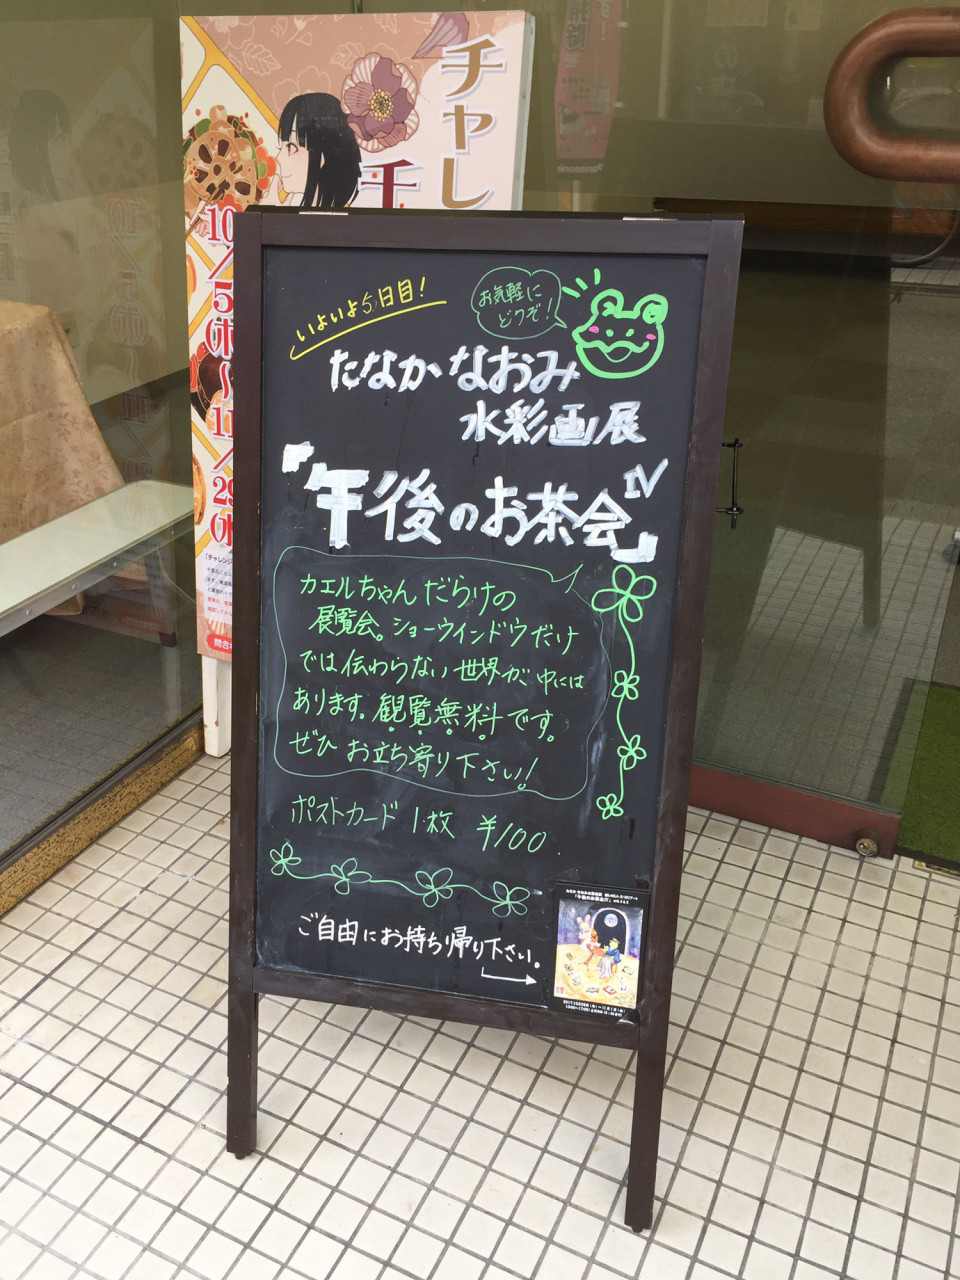 チャレ
チ
10/5(木)〜11/29(水)
いよいよ5日目!
お気軽に
どうぞ!
たなかなおみ
水彩画展
『午後のお茶会IV』
カエルちゃんだらけの
展覧会。ショーウインドウだけ
では伝わらない世界が中には
あります。観覧無料です。
ぜひお立ち寄り下さい!
ポストカード 1枚 ¥100
ご自由にお持ち帰り下さい。